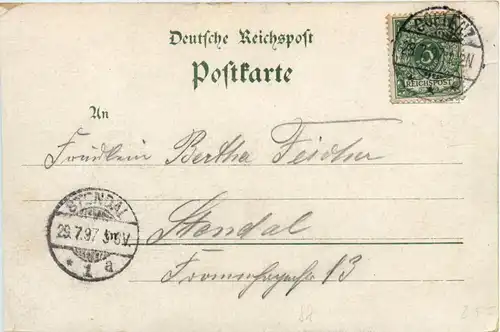 Deutsche Reichspost
Postkarte
5
REICHSPOST
An
Fräulein Bertha Fischer
Stendal
13
STENDAL
29.7.97
* 1 a